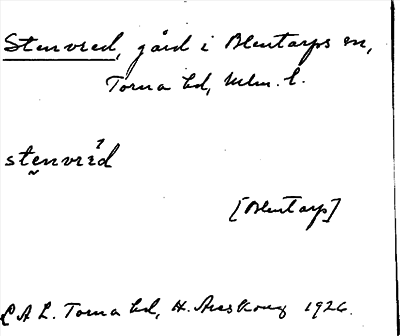 Stenvred, gård i Blentarps sn,
Torna hd, Mlm. l.
stenvrèd
[Blentarp]
L A L. Torna hd, H. Areskoug 1926.